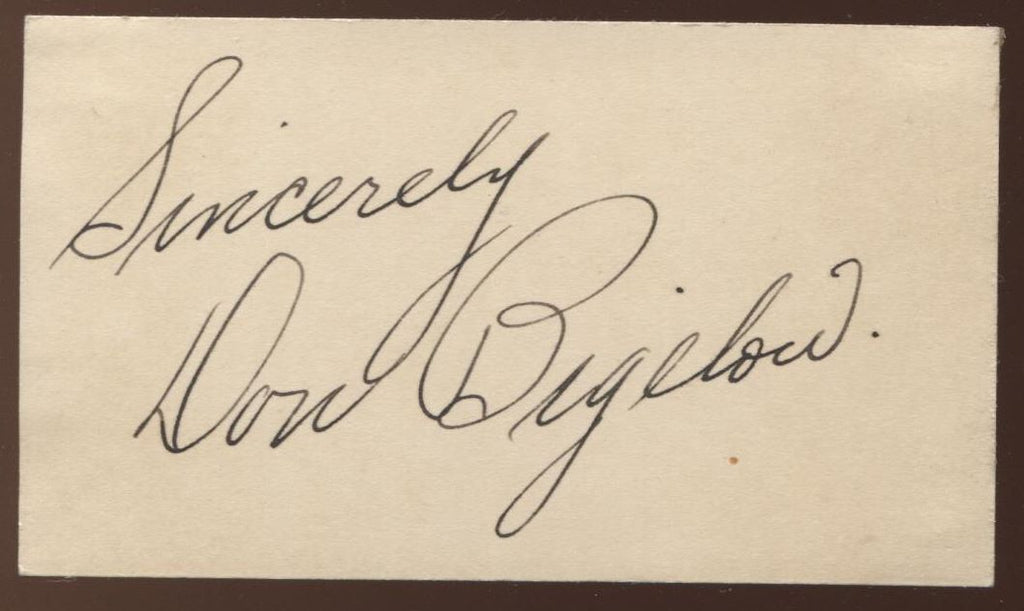 Sincerely
Don Bigelow.